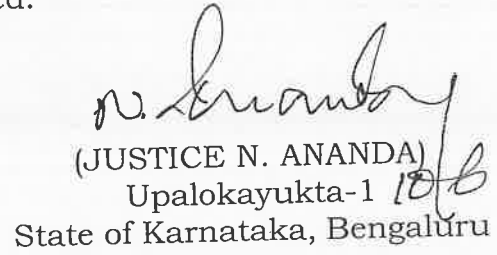 ed.
N. Ananda
(JUSTICE N. ANANDA)
Upalokayukta-1 10/6
State of Karnataka, Bengaluru